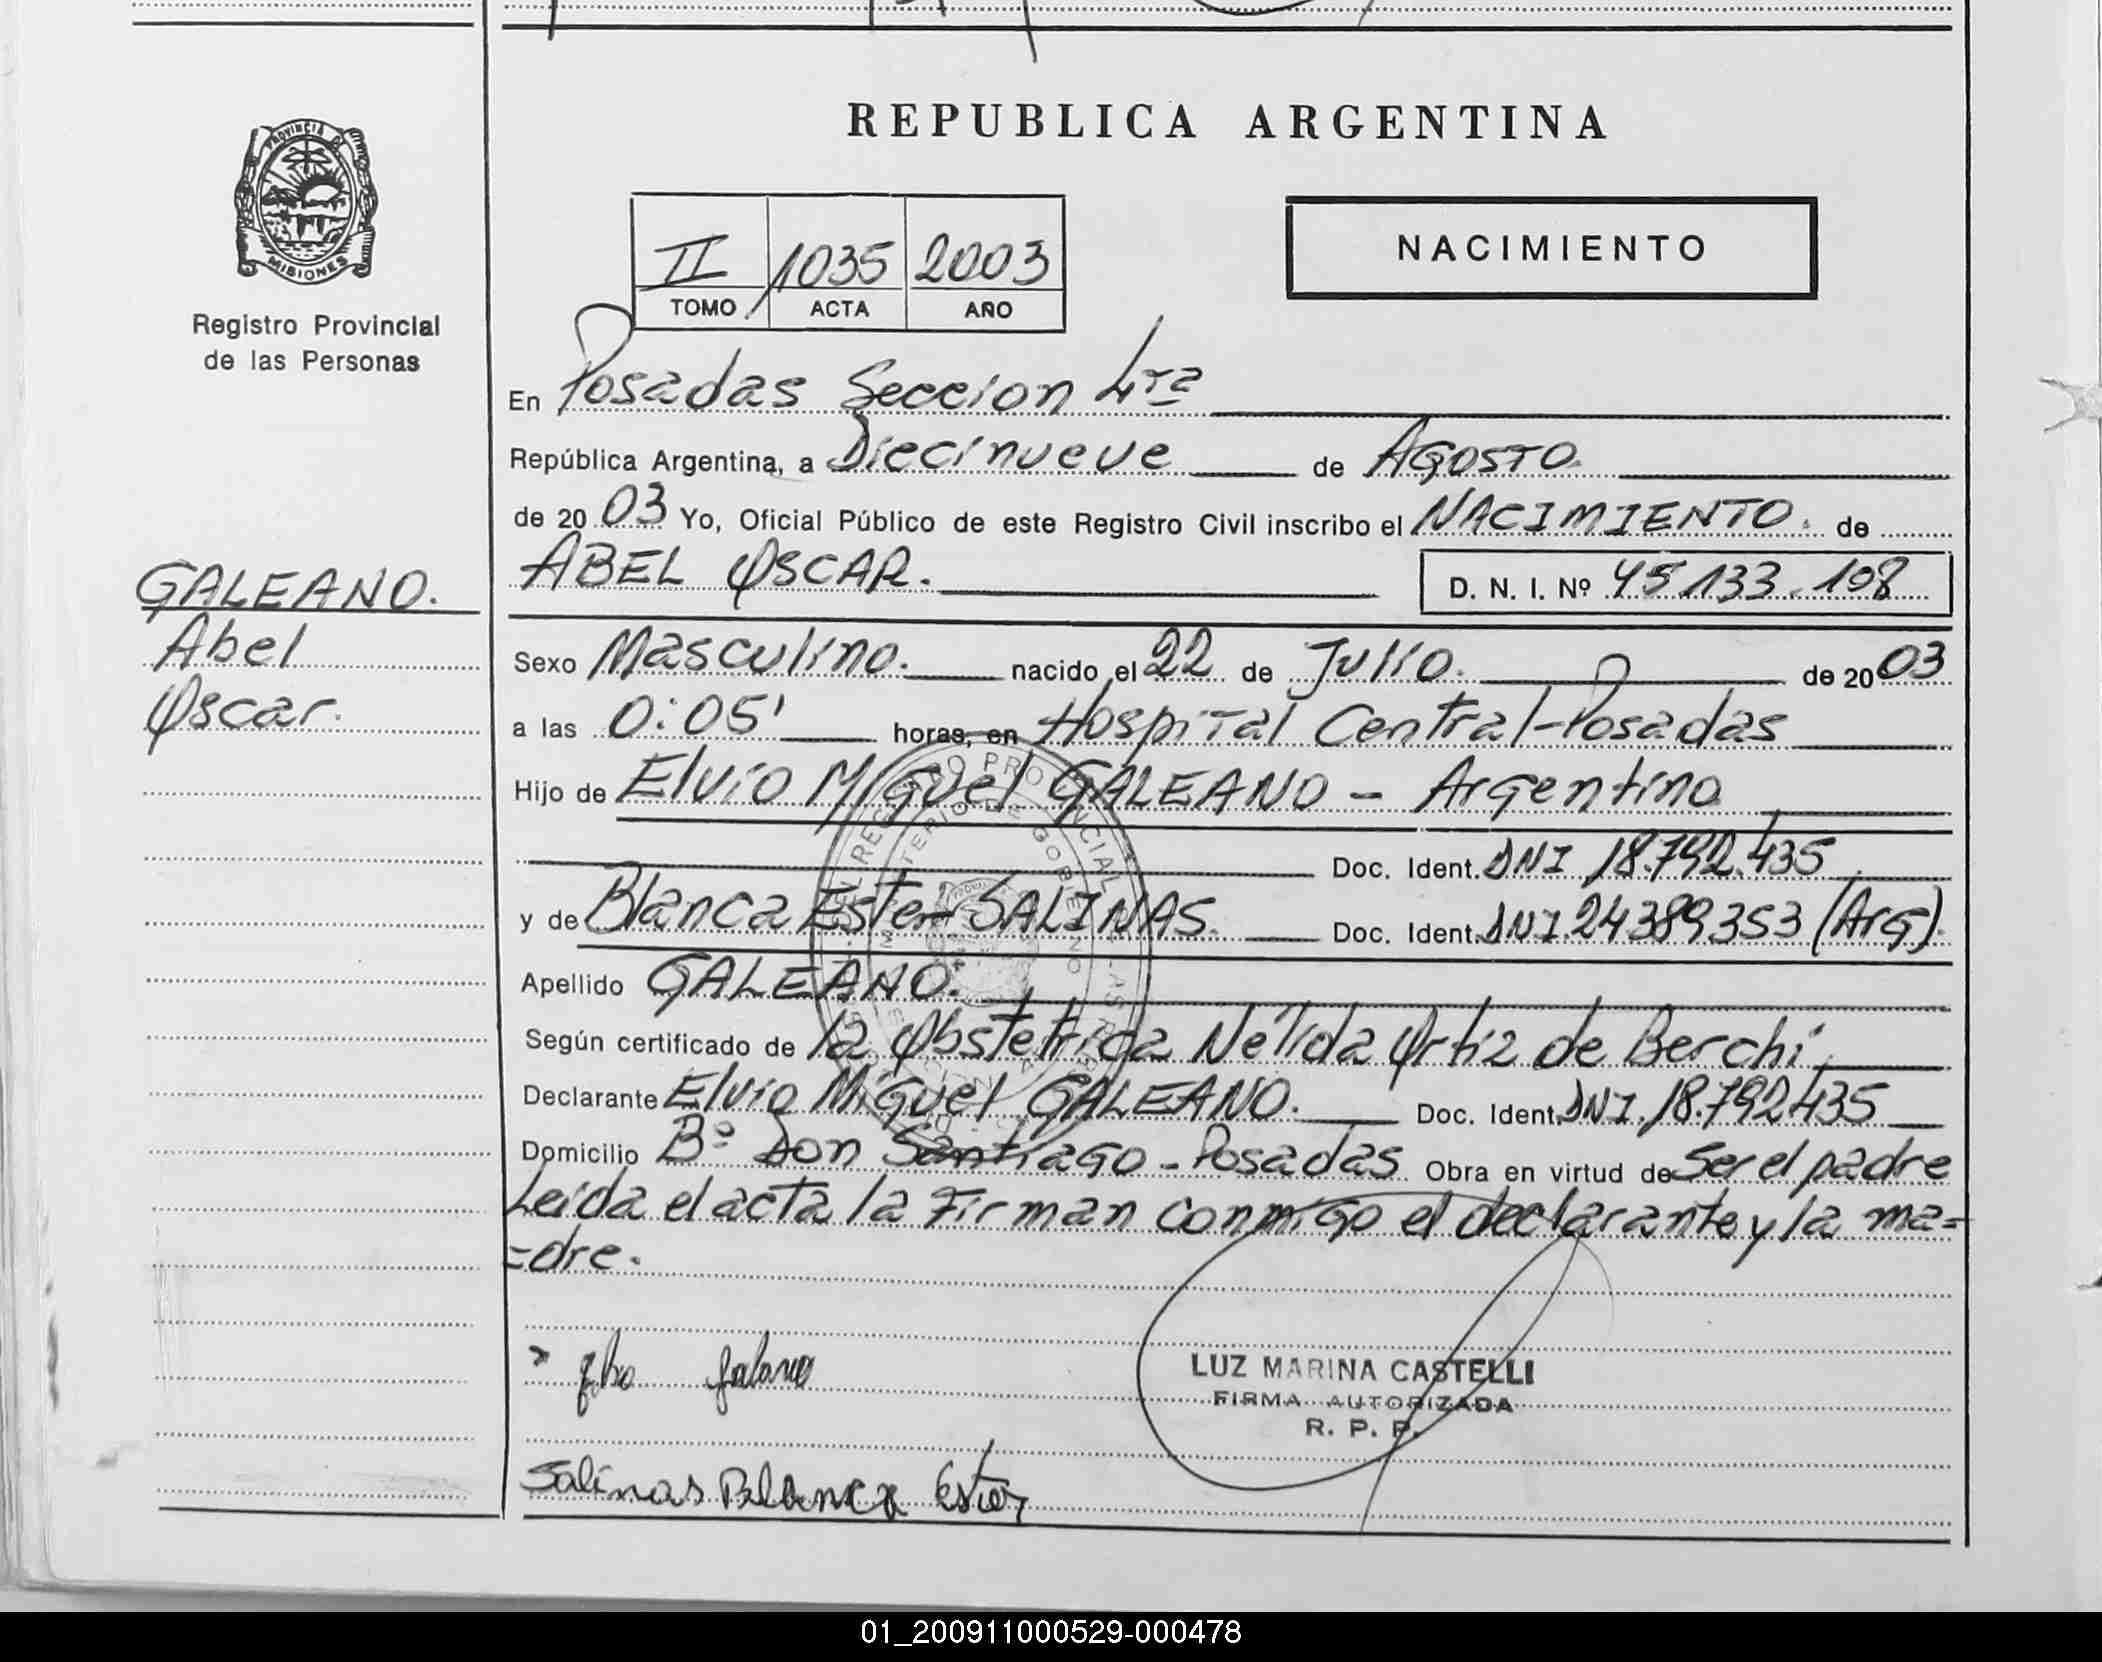 REPUBLICA ARGENTINA
PROVINCIA DE
MISIONES
Registro Provincial
de las Personas
II 1035 2003
TOMO ACTA AÑO
NACIMIENTO
En Posadas Seccion 4ta
República Argentina, a Diecinueve de Agosto.
de 20 03 Yo, Oficial Público de este Registro Civil inscribo el NACIMIENTO. de
ABEL OSCAR. D. N. I. Nº 45.133.108
GALEANO.
Abel
Oscar.
Sexo Masculino. nacido el 22 de Julio. de 20 03
a las 0:05' horas, en Hospital Central-Posadas
Hijo de Elvio Miguel GALEANO - Argentino
Doc. Ident. DNI 18.792.435
y de Blanca Ester SALINAS. Doc. Ident. DNI 24389353 (Arg).
Apellido GALEANO.
Según certificado de la Obstetrica Nélida Ortiz de Berchi.
Declarante Elvio Miguel GALEANO. Doc. Ident. DNI. 18.792435
Domicilio Bº Don Santiago - Posadas Obra en virtud de Ser el padre
Leida el acta la Firman conmigo el declarante y la ma=
=dre.
Elvio Galeano
LUZ MARINA CASTELLI
FIRMA AUTORIZADA
R. P. P.
Salinas Blanca Ester
01_200911000529-000478